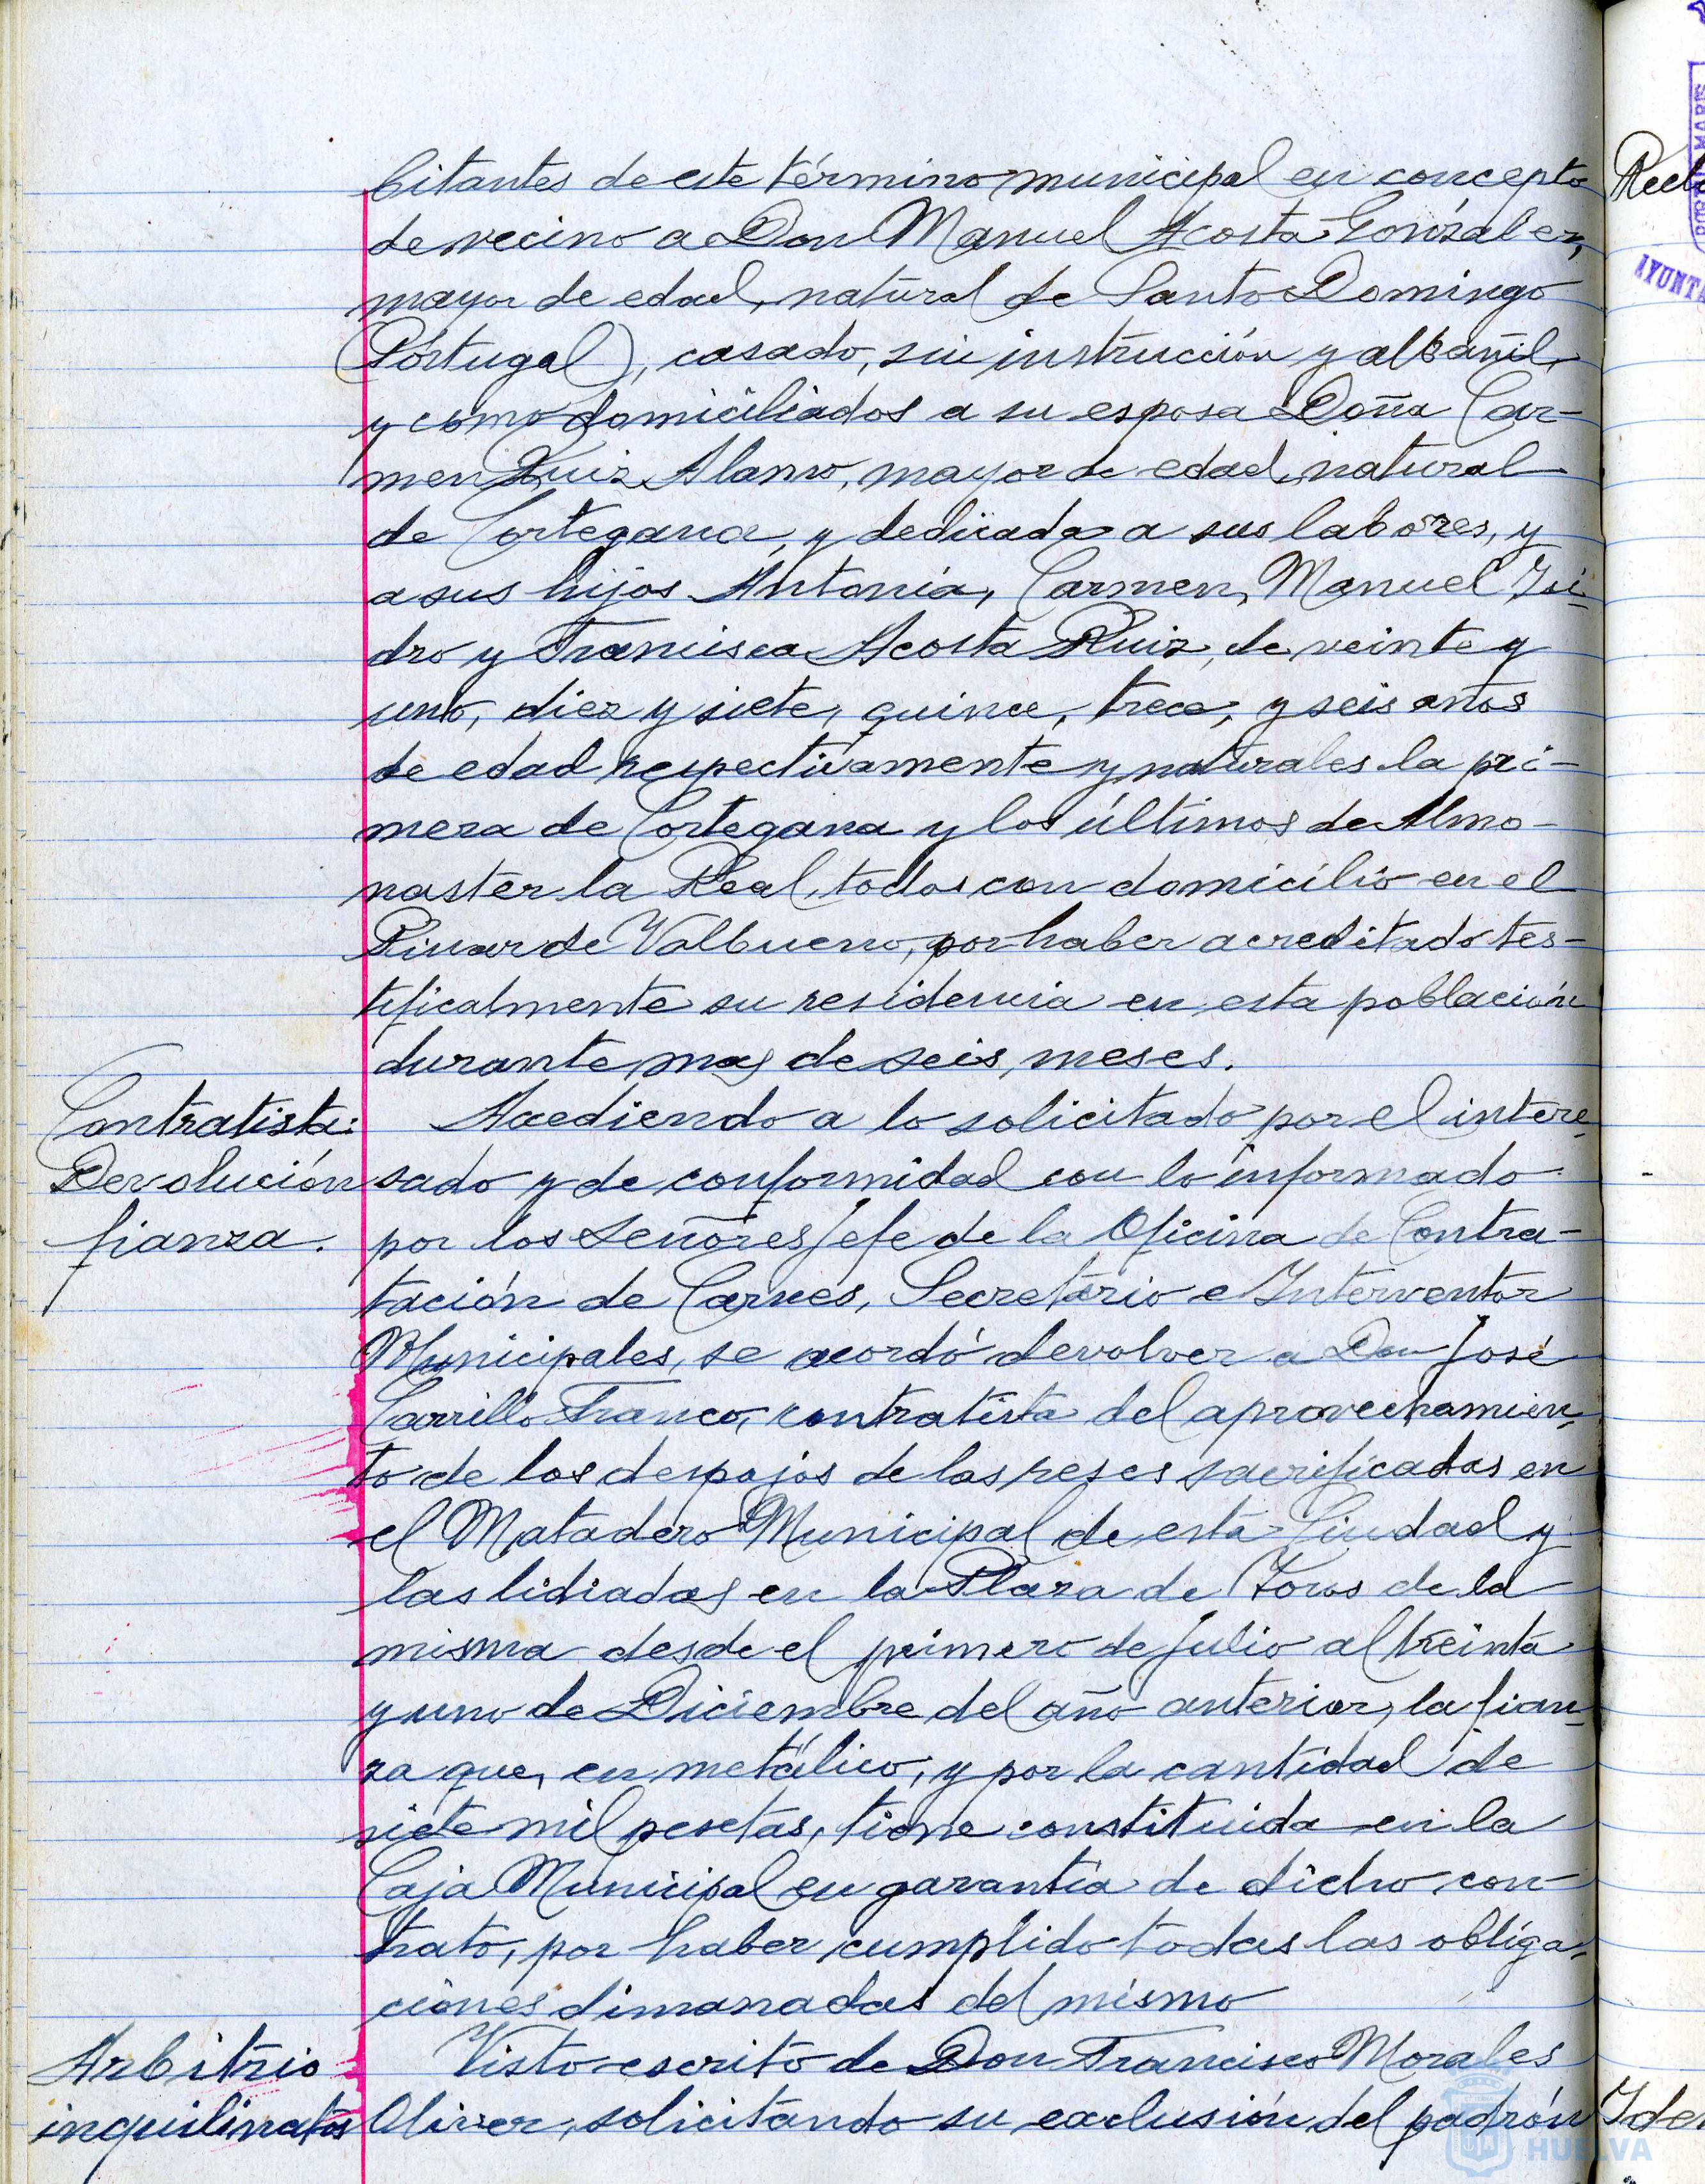 bitantes de este término municipal en concepto
de vecino a Don Manuel Acosta González,
mayor de edad, natural de Santo Domingo
(Pórtugal), casado, sin instrucción y albañil,
y como domiciliados a su esposa Doña Car-
men Ruiz Alamo, mayor de edad, natural
de Cortegana, y dedicada a sus labores, y
a sus hijos Antonia, Carmen, Manuel Isi-
dro y Francisca Acosta Ruiz, de veinte y
uno, diez y siete, quince, trece, y seis años
de edad respectivamente y naturales la pri-
mera de Cortegana y los últimos de Almo-
naster la Real, todos con domicilio en el
Pinar de Valbueno, por haber acreditado tes-
tificalmente su residencia en esta población
durante mas de seis, meses.
Contratista:
Devolución
fianza.
Accediendo a lo solicitado por el intere-
sado y de conformidad con lo informado
por los Señores Jefe de la Oficina de Contra-
tación de Carnes, Secretario e Interventor
Municipales, se acordó devolver a Don José
Carrillo Franco, contratista del aprovechamien-
to de los despojos de las reses sacrificadas en
el Matadero Municipal de esta Ciudad y
las lidiadas en la Plaza de Toros de la
misma desde el primero de Julio al treinta
y uno de Diciembre del año anterior, la fian-
za que, en metálico, y por la cantidad de
siete mil pesetas, tiene constituida en la
Caja Municipal en garantía de dicho con-
trato, por haber cumplido todas las obliga-
ciones dimanadas del mismo
Arbitrio
inquilinatos
Visto escrito de Don Francisco Morales
Oliver, solicitando su exclusión del padrón
HUELVA